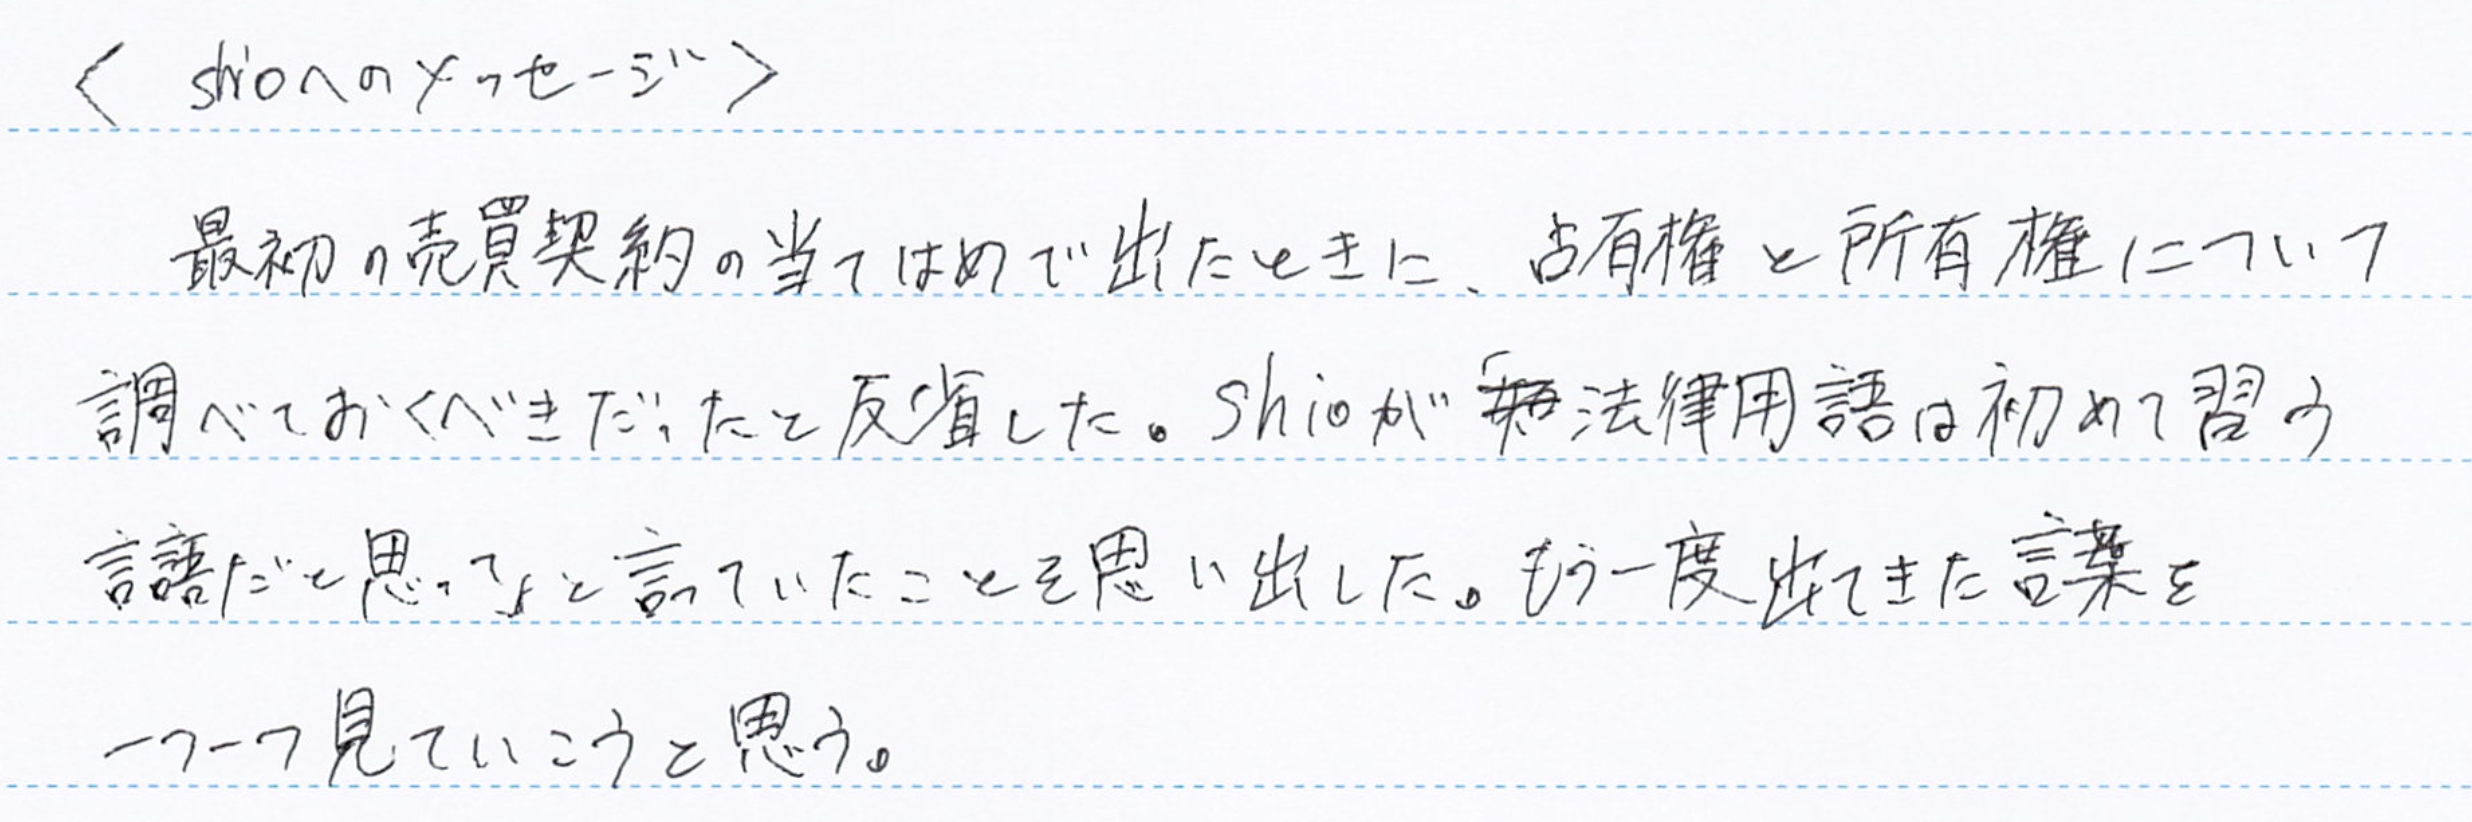 〈 shioへのメッセージ 〉
最初の売買契約の当てはめで出たときに、占有権と所有権について
調べておくべきだったと反省した。shioが「法律用語は初めて習う
言語だと思ってよ」と言っていたことを思い出した。もう一度出てきた言葉を
一つ一つ見ていこうと思う。